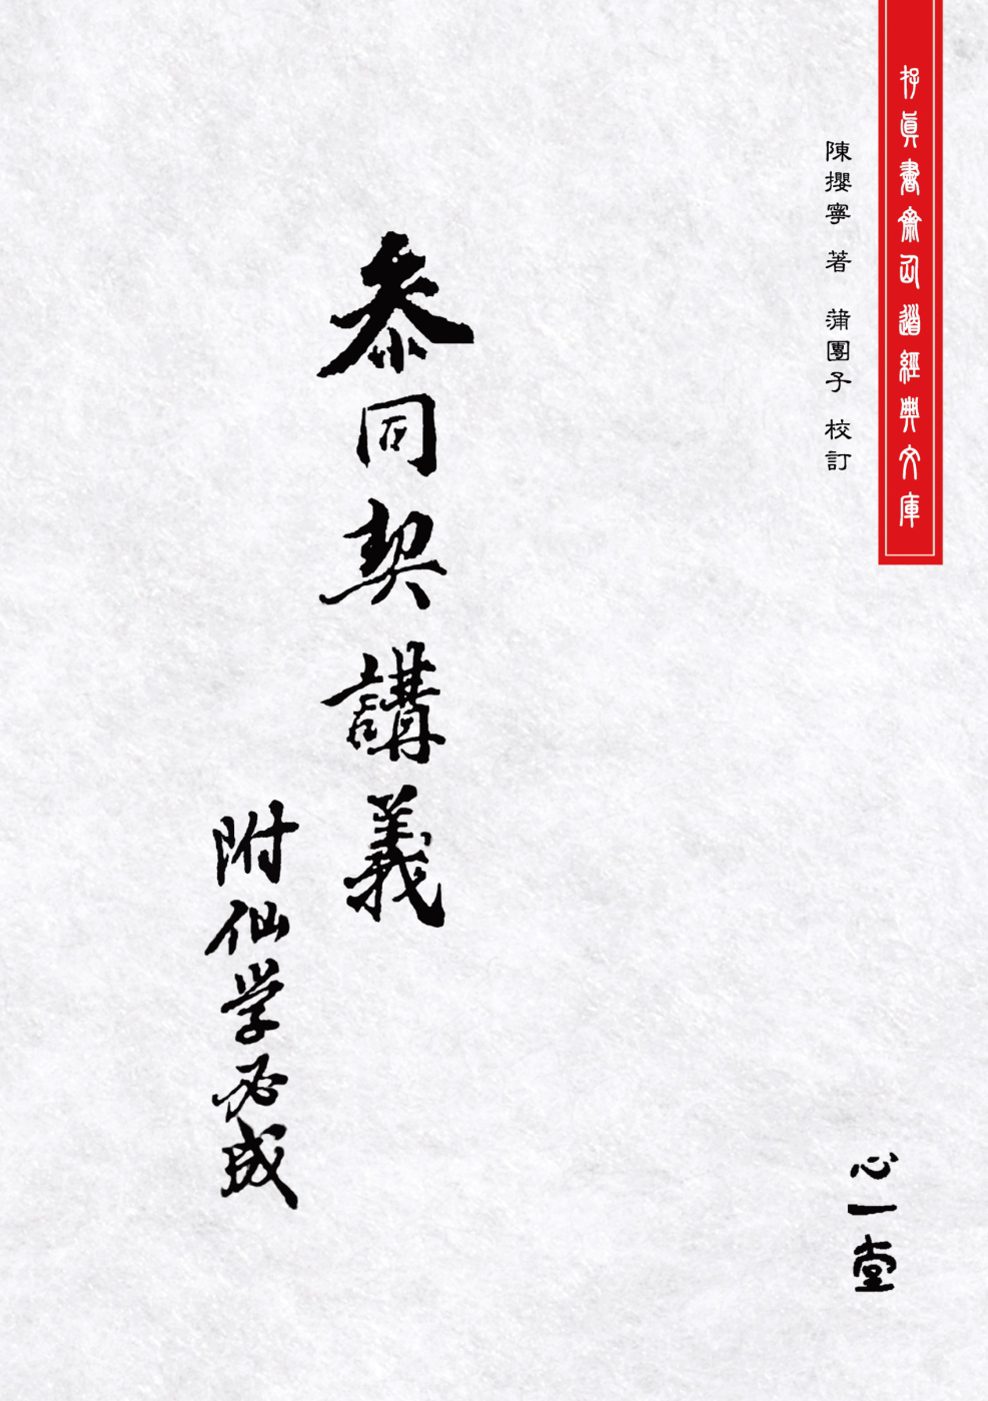 存真書齋仙道經典文庫
陳攖寧 著 蒲團子 校訂
參同契講義
附仙学必成
心一堂